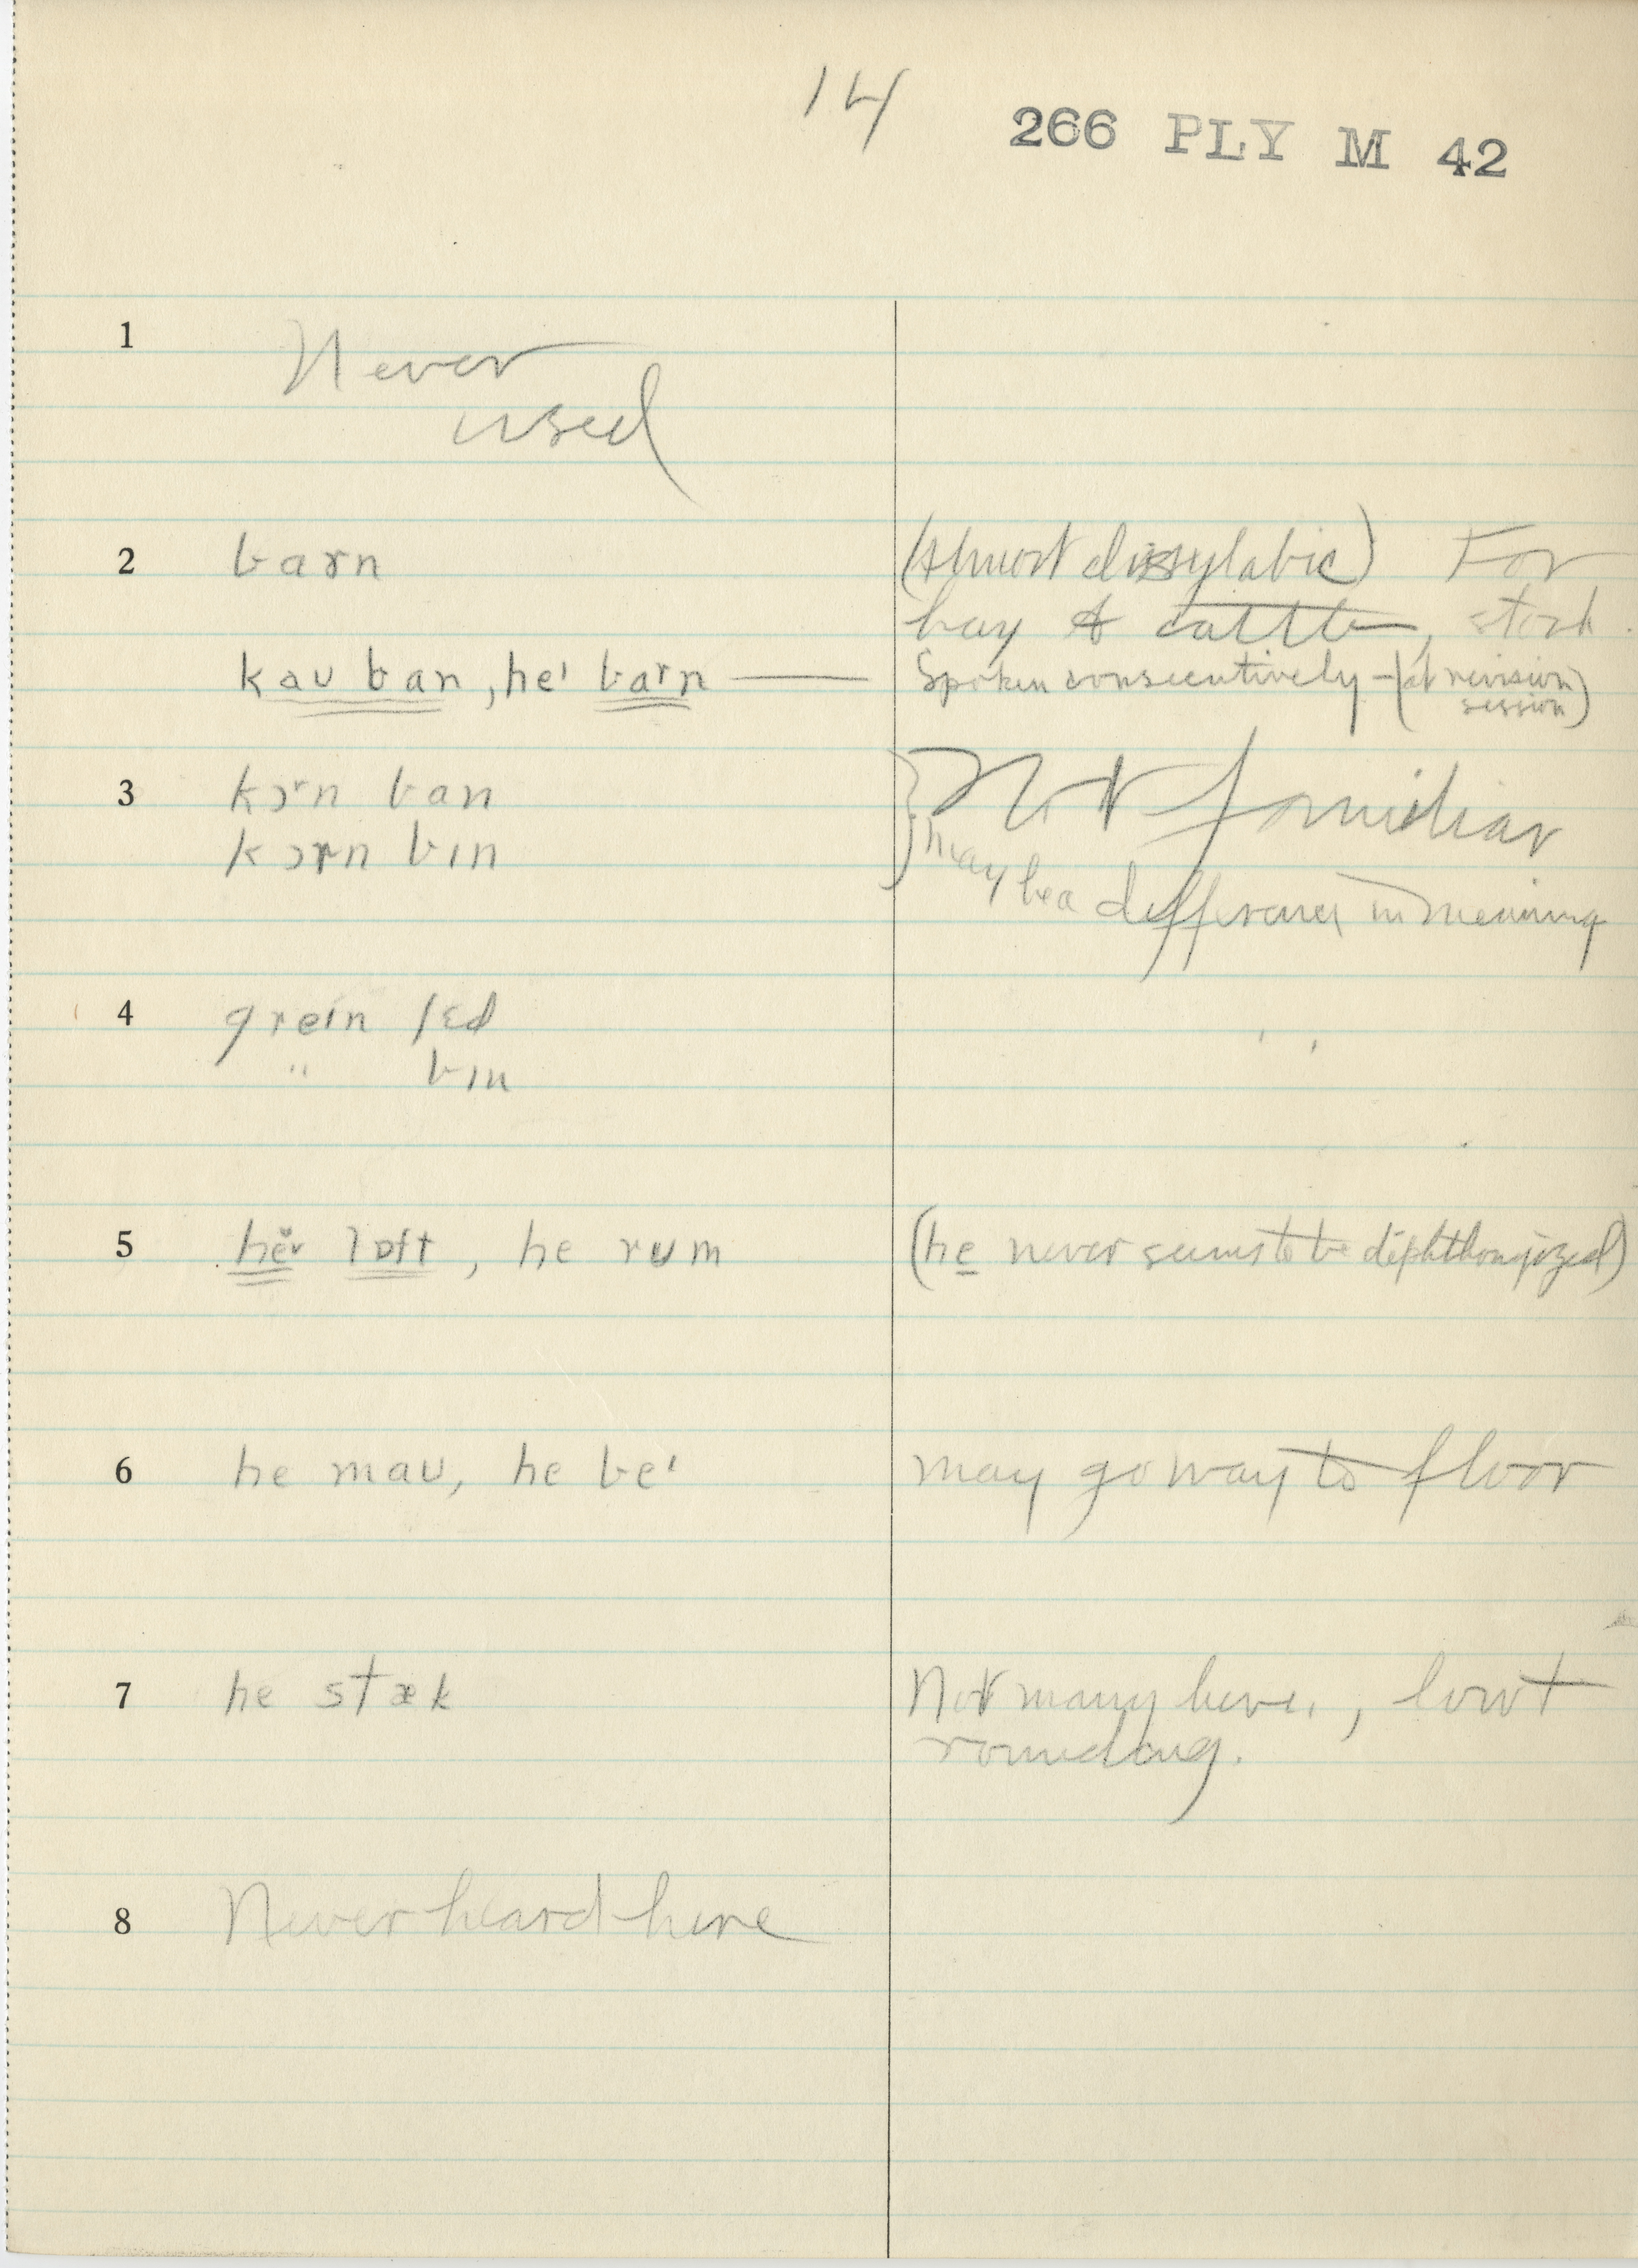 14
266 PLY M 42
1 Never
used
2 barn (Almost dissylabic) For
hay & cattle, stock.
kaʊ ban, heˈ barn — Spoken consecutively – (at revision
session)
3 kɔrn ban } Not familiar
kɔrn bɪn may be a difference in meaning
4 greɪn ʃɛd
" bɪn
5 lɒft, he rum (he never seems to be diphthongized)
6 he maʊ, he beˈ may go way to floor
7 he stæk Not many here,
rounding.
8 Never heard here